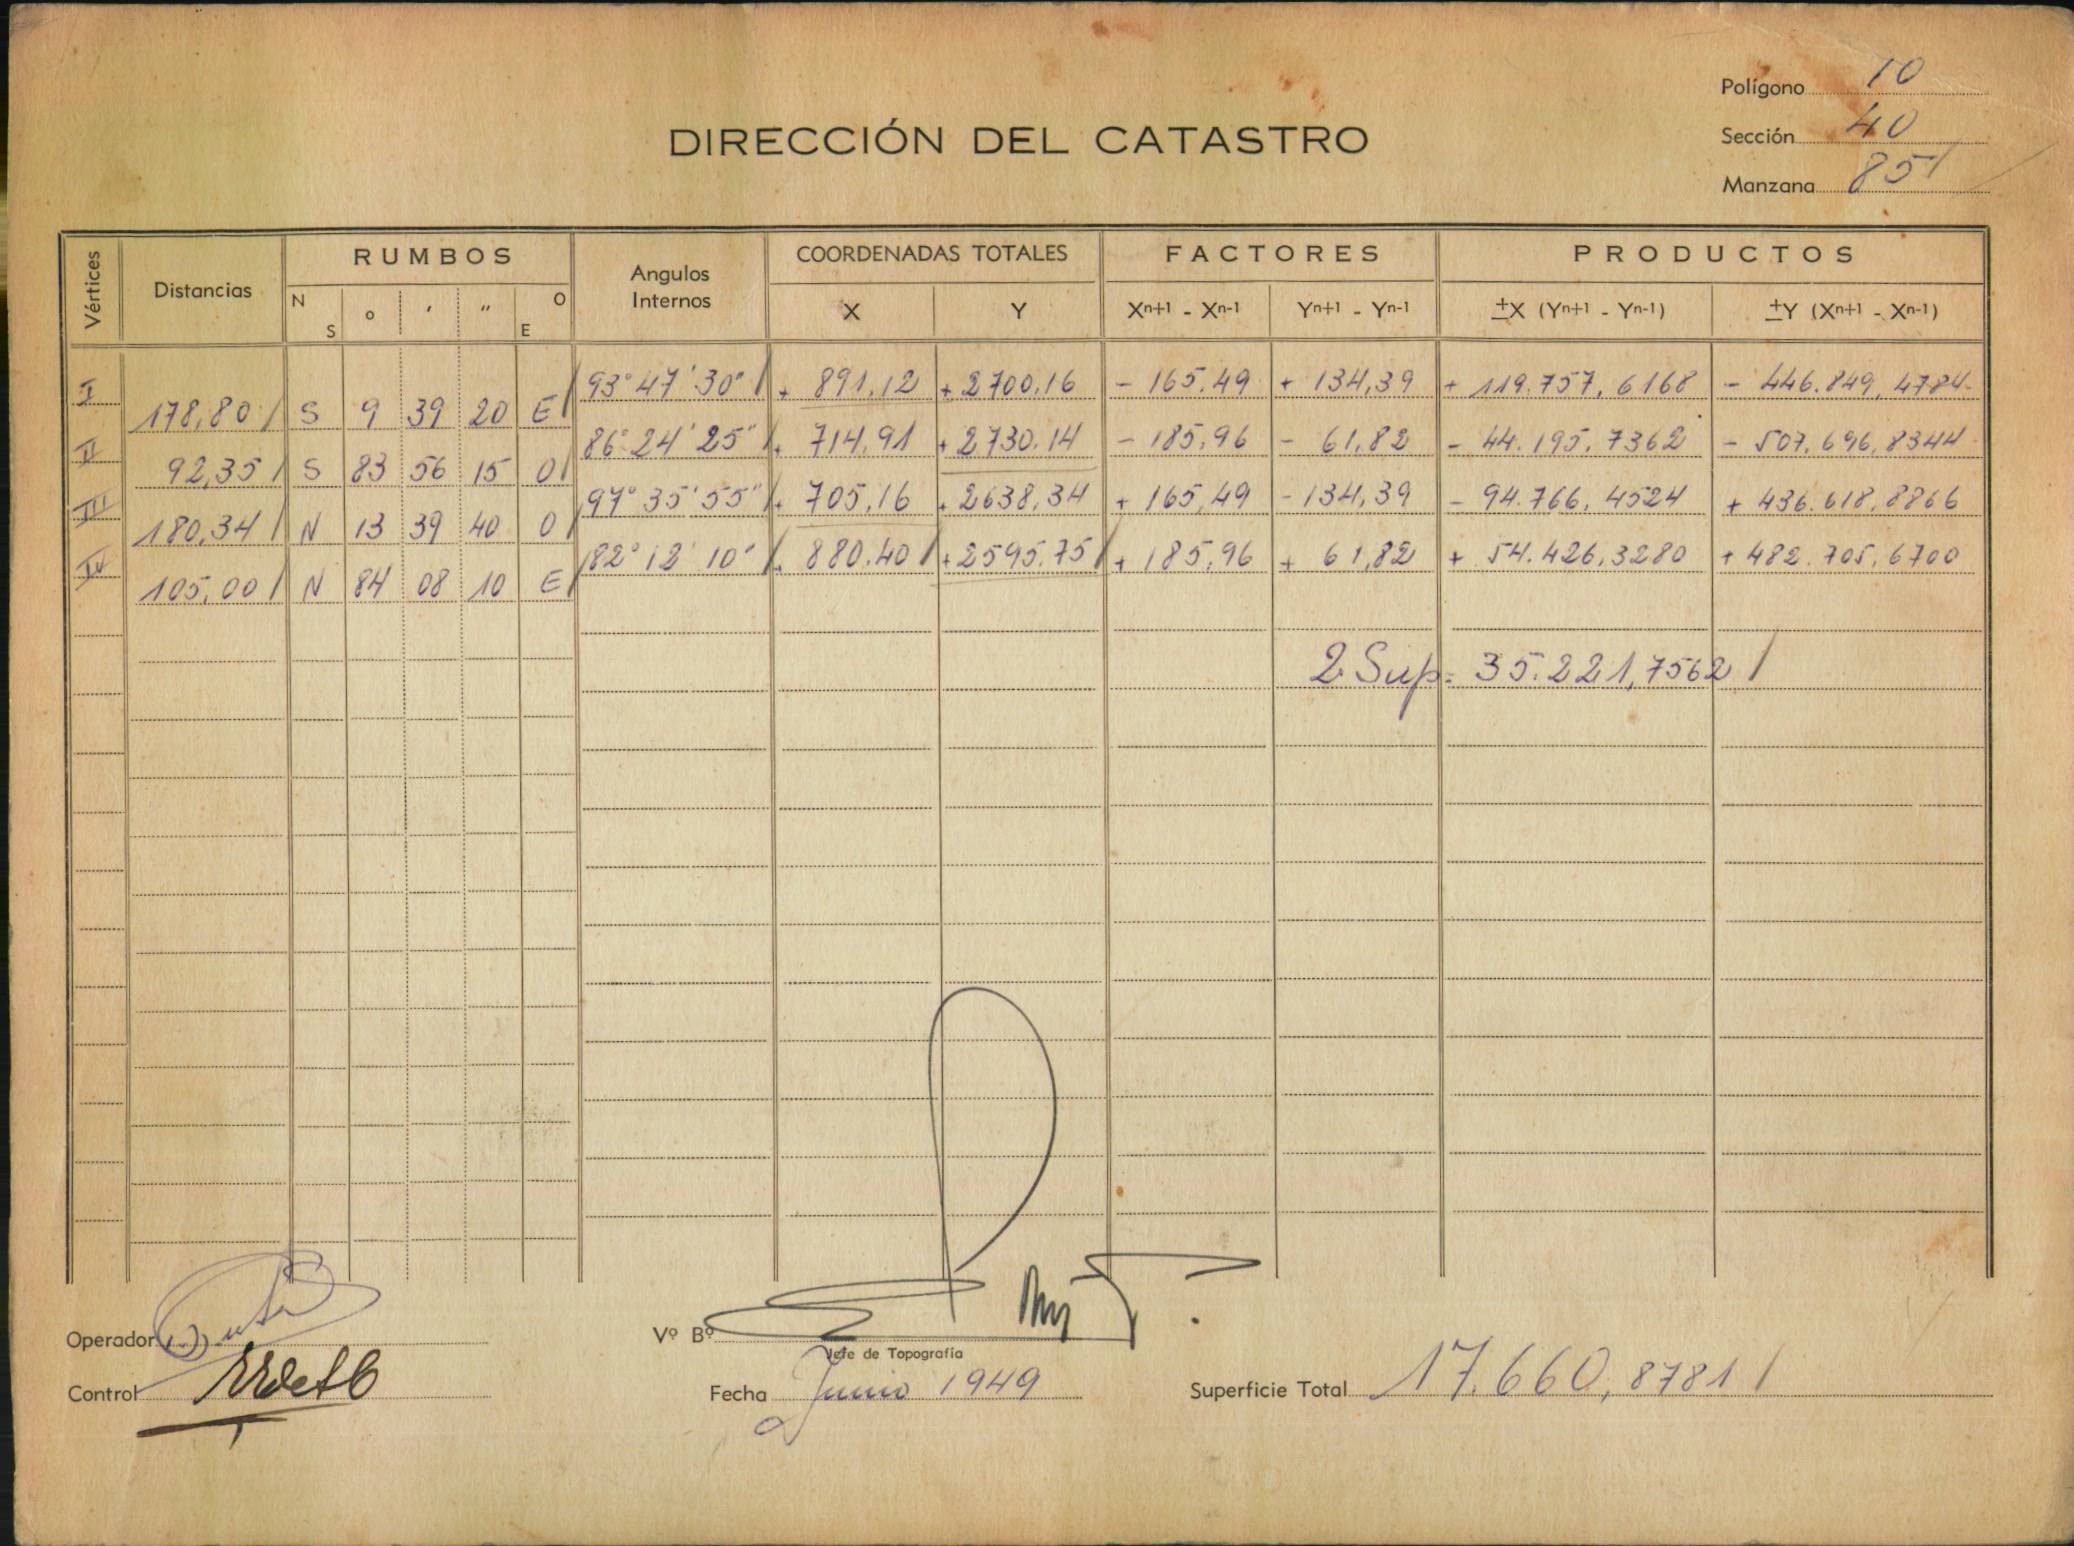 Polígono 10
DIRECCIÓN DEL CATASTRO
Sección 40
Manzana 85
Vértices Distancias RUMBOS Angulos Internos COORDENADAS TOTALES FACTORES PRODUCTOS
N S o ' " O E X Y Xn+1 - Xn-1 Yn+1 - Yn-1 ±X (Yn+1 - Yn-1) ±Y (Xn+1 - Xn-1)
I 93° 47' 30" + 891,12 + 2700,16 - 165,49 + 134,39 + 119.757,6168 - 446.849,4784
178,80 S 9 39 20 E
II 86° 24' 25" + 714,91 + 2730,14 - 185,96 - 61,82 - 44.195,7362 - 507.696,8344
92,35 S 83 56 15 O
III 97° 35' 55" + 705,16 + 2638,34 + 165,49 - 134,39 - 94.766,4524 + 436.618,8866
180,34 N 13 39 40 O
IV 82° 12' 10" + 880,40 + 2595,75 + 185,96 + 61,82 + 54.426,3280 + 482.705,6700
105,00 N 84 08 10 E
2 Sup = 35.221,7562
Operador
Vº Bº
Jefe de Topografía
Control
Fecha Junio 1949
Superficie Total 17.660,8781